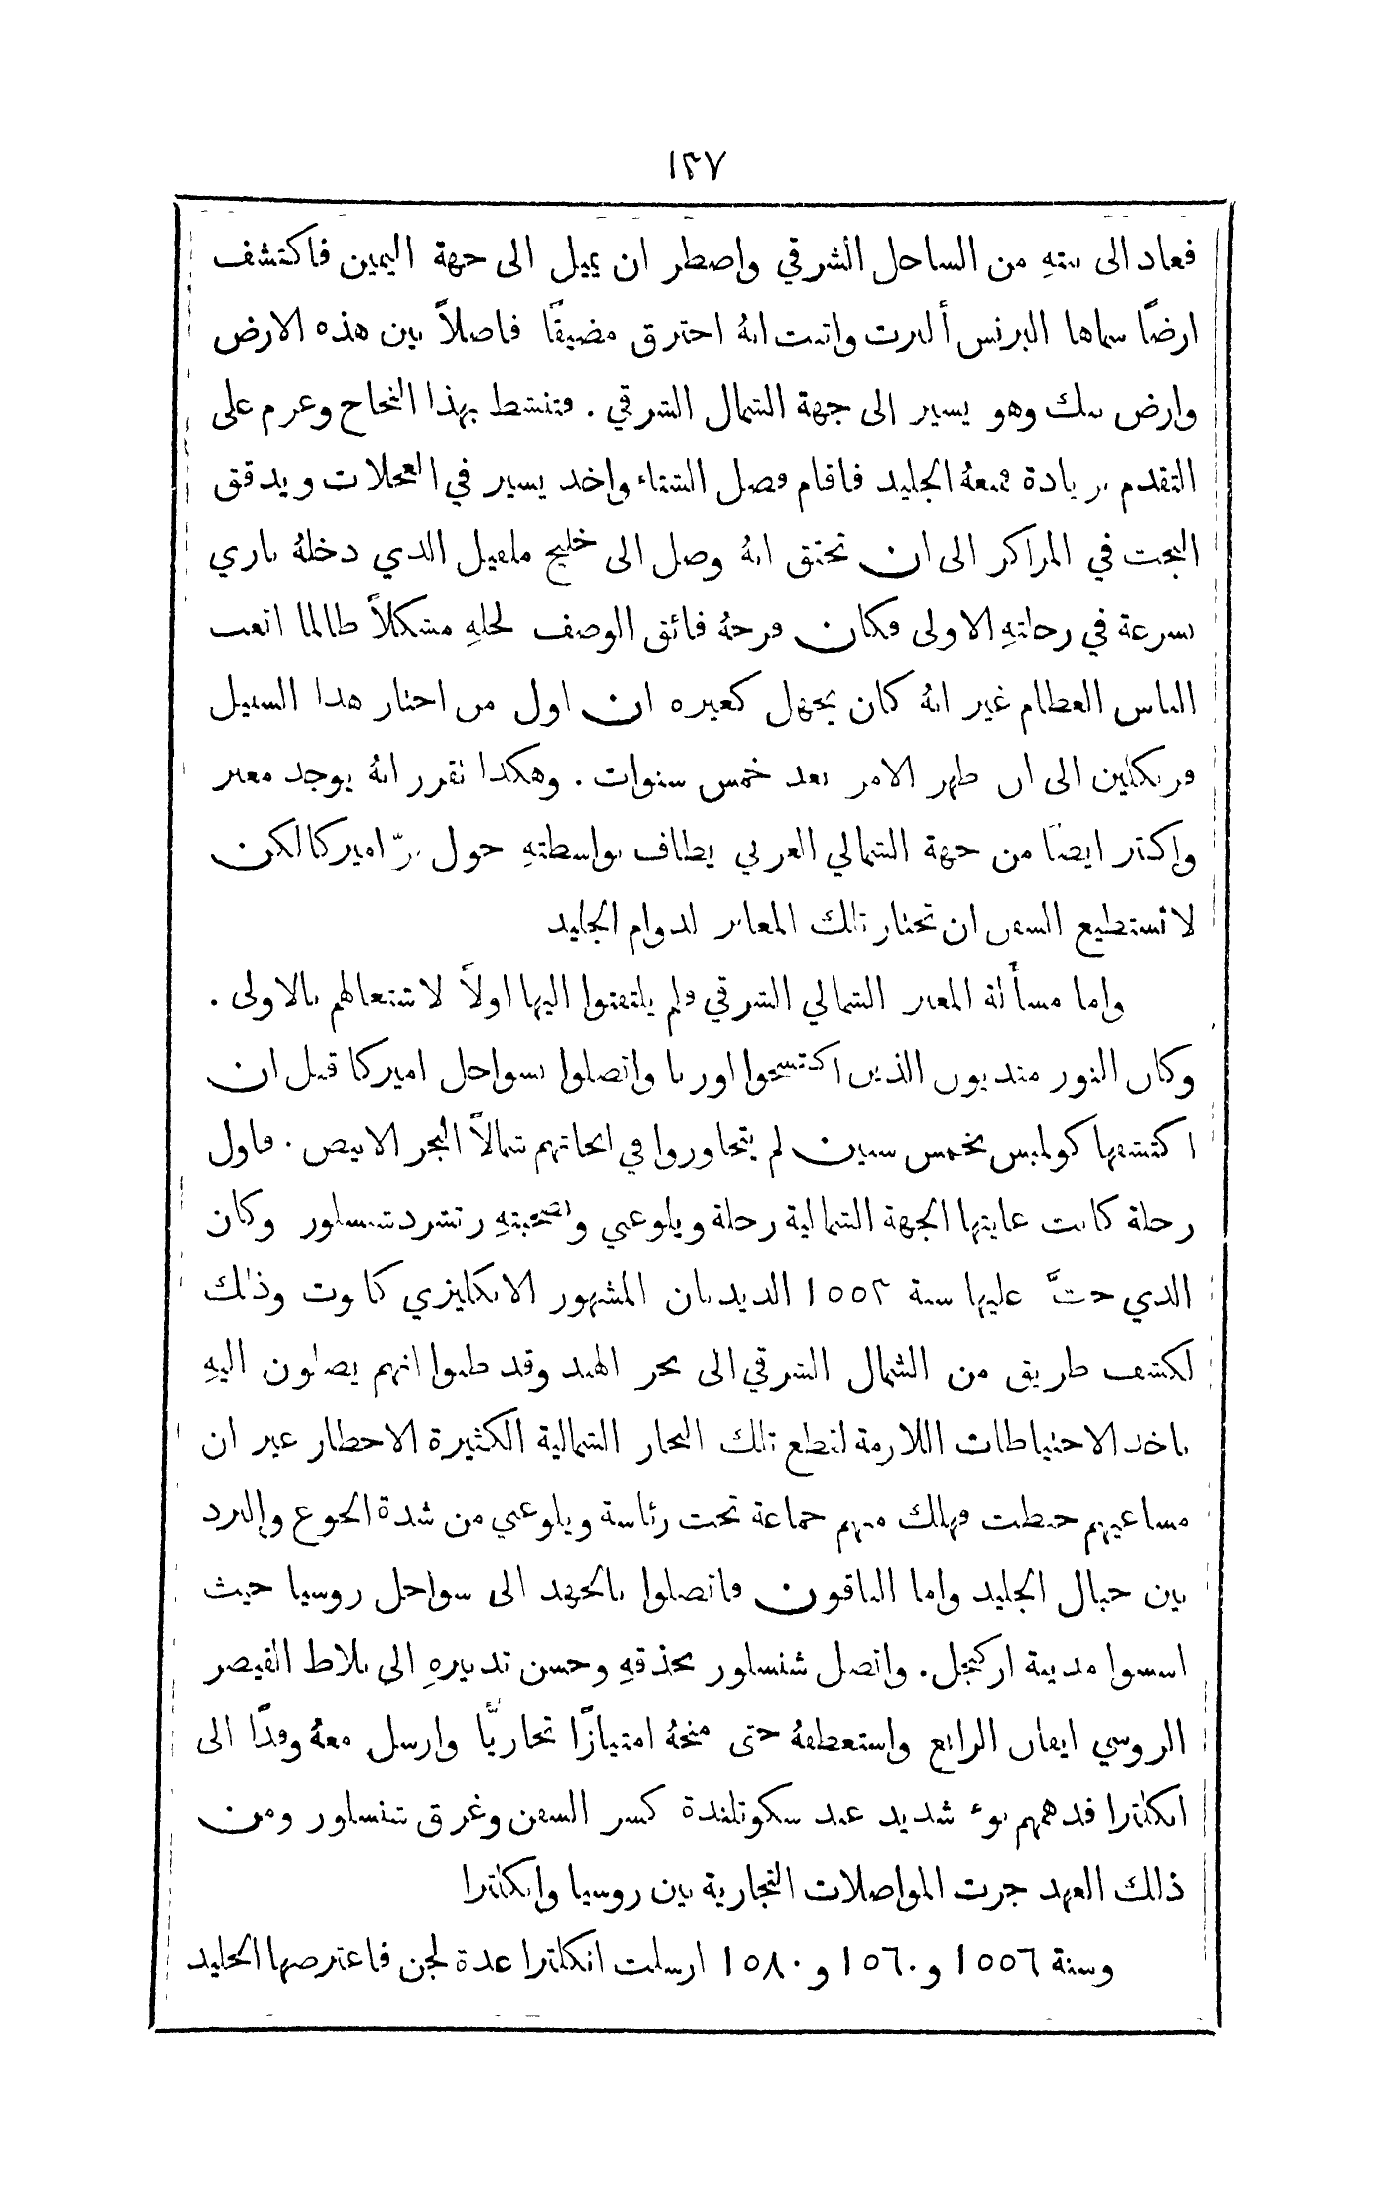 ١٣٧
فعاد الى بيته من الساحل الشرقي واضطر ان يميل الى جهة اليمين فاكتشف
ارضًا سماها البرنس ألبرت واثبت انهُ اخترق مضيقًا فاصلاً بين هذه الارض
وارض بنك وهو يسير الى جهة الشمال الشرقي . فتنشط بهذا النجاح وعزم على
التقدم بزيادة فمنعهُ الجليد فاقام فصل الشتاء واخذ يسير في العجلات ويدقق
البحث في المراكز الى ان تحقق انهُ وصل الى خليج ملفيل الذي دخلهُ باري
بسرعة في رحلتهِ الاولى فكان فرحهُ فائق الوصف لحلهِ مشكلاً طالما اتعب
الناس العظام غير انهُ كان يجهل كغيره ان اول من اختار هذا السبيل
فرنكلين الى ان ظهر الامر بعد خمس سنوات . وهكذا تقرر انهُ يوجد معبر
واكثر ايضًا من جهة الشمالي الغربي يطاف بواسطتهِ حول برّ اميركا لكن
لا تستطيع السفن ان تختار تلك المعابر لدوام الجليد
واما مسأَلة المعبر الشمالي الشرقي فلم يلتفتوا اليها اولاً لاشتغالهم بالاولى .
وكان النورمنديون الذين اكتسحوا اوربا واتصلوا بسواحل اميركا قبل ان
اكتشفها كولمبس بخمس سنين لم يتجاوزوا في ابحاثهم شمالاً البحر الابيض . فاول
رحلة كانت غايتها الجهة الشمالية رحلة ويلوغبي وصحبتهِ رتشرد شنسلور وكان
الذي حثَّ عليها سنة ١٥٥٣ الديدبان المشهور الانكليزي كابوت وذلك
لكشف طريق من الشمال الشرقي الى بحر الهند وقد ظنوا انهم يصلون اليهِ
باخذ الاحتياطات اللازمة لقطع تلك البحار الشمالية الكثيرة الاخطار غير ان
مساعيهم حبطت فهلك منهم جماعة تحت رئاسة ويلوغبي من شدة الجوع والبرد
بين جبال الجليد واما الباقون فاتصلوا بالجهد الى سواحل روسيا حيث
اسسوا مدينة اركنجل . واتصل شنسلور بحذقهِ وحسن تدبيرهِ الى بلاط القيصر
الروسي ايفان الرابع واستعطفهُ حتى منحهُ امتيازًا تجاريًّا وارسل معهُ وفدًا الى
انكلترا فدهمهم نوء شديد عند سكوتلندة كسر السفن وغرق شنسلور ومن
ذلك العهد جرت المواصلات التجارية بين روسيا وانكلترا
وسنة ١٥٥٦ و١٥٦٠ و١٥٨٠ ارسلت انكلترا عدة لجن فاعترضها الجليد